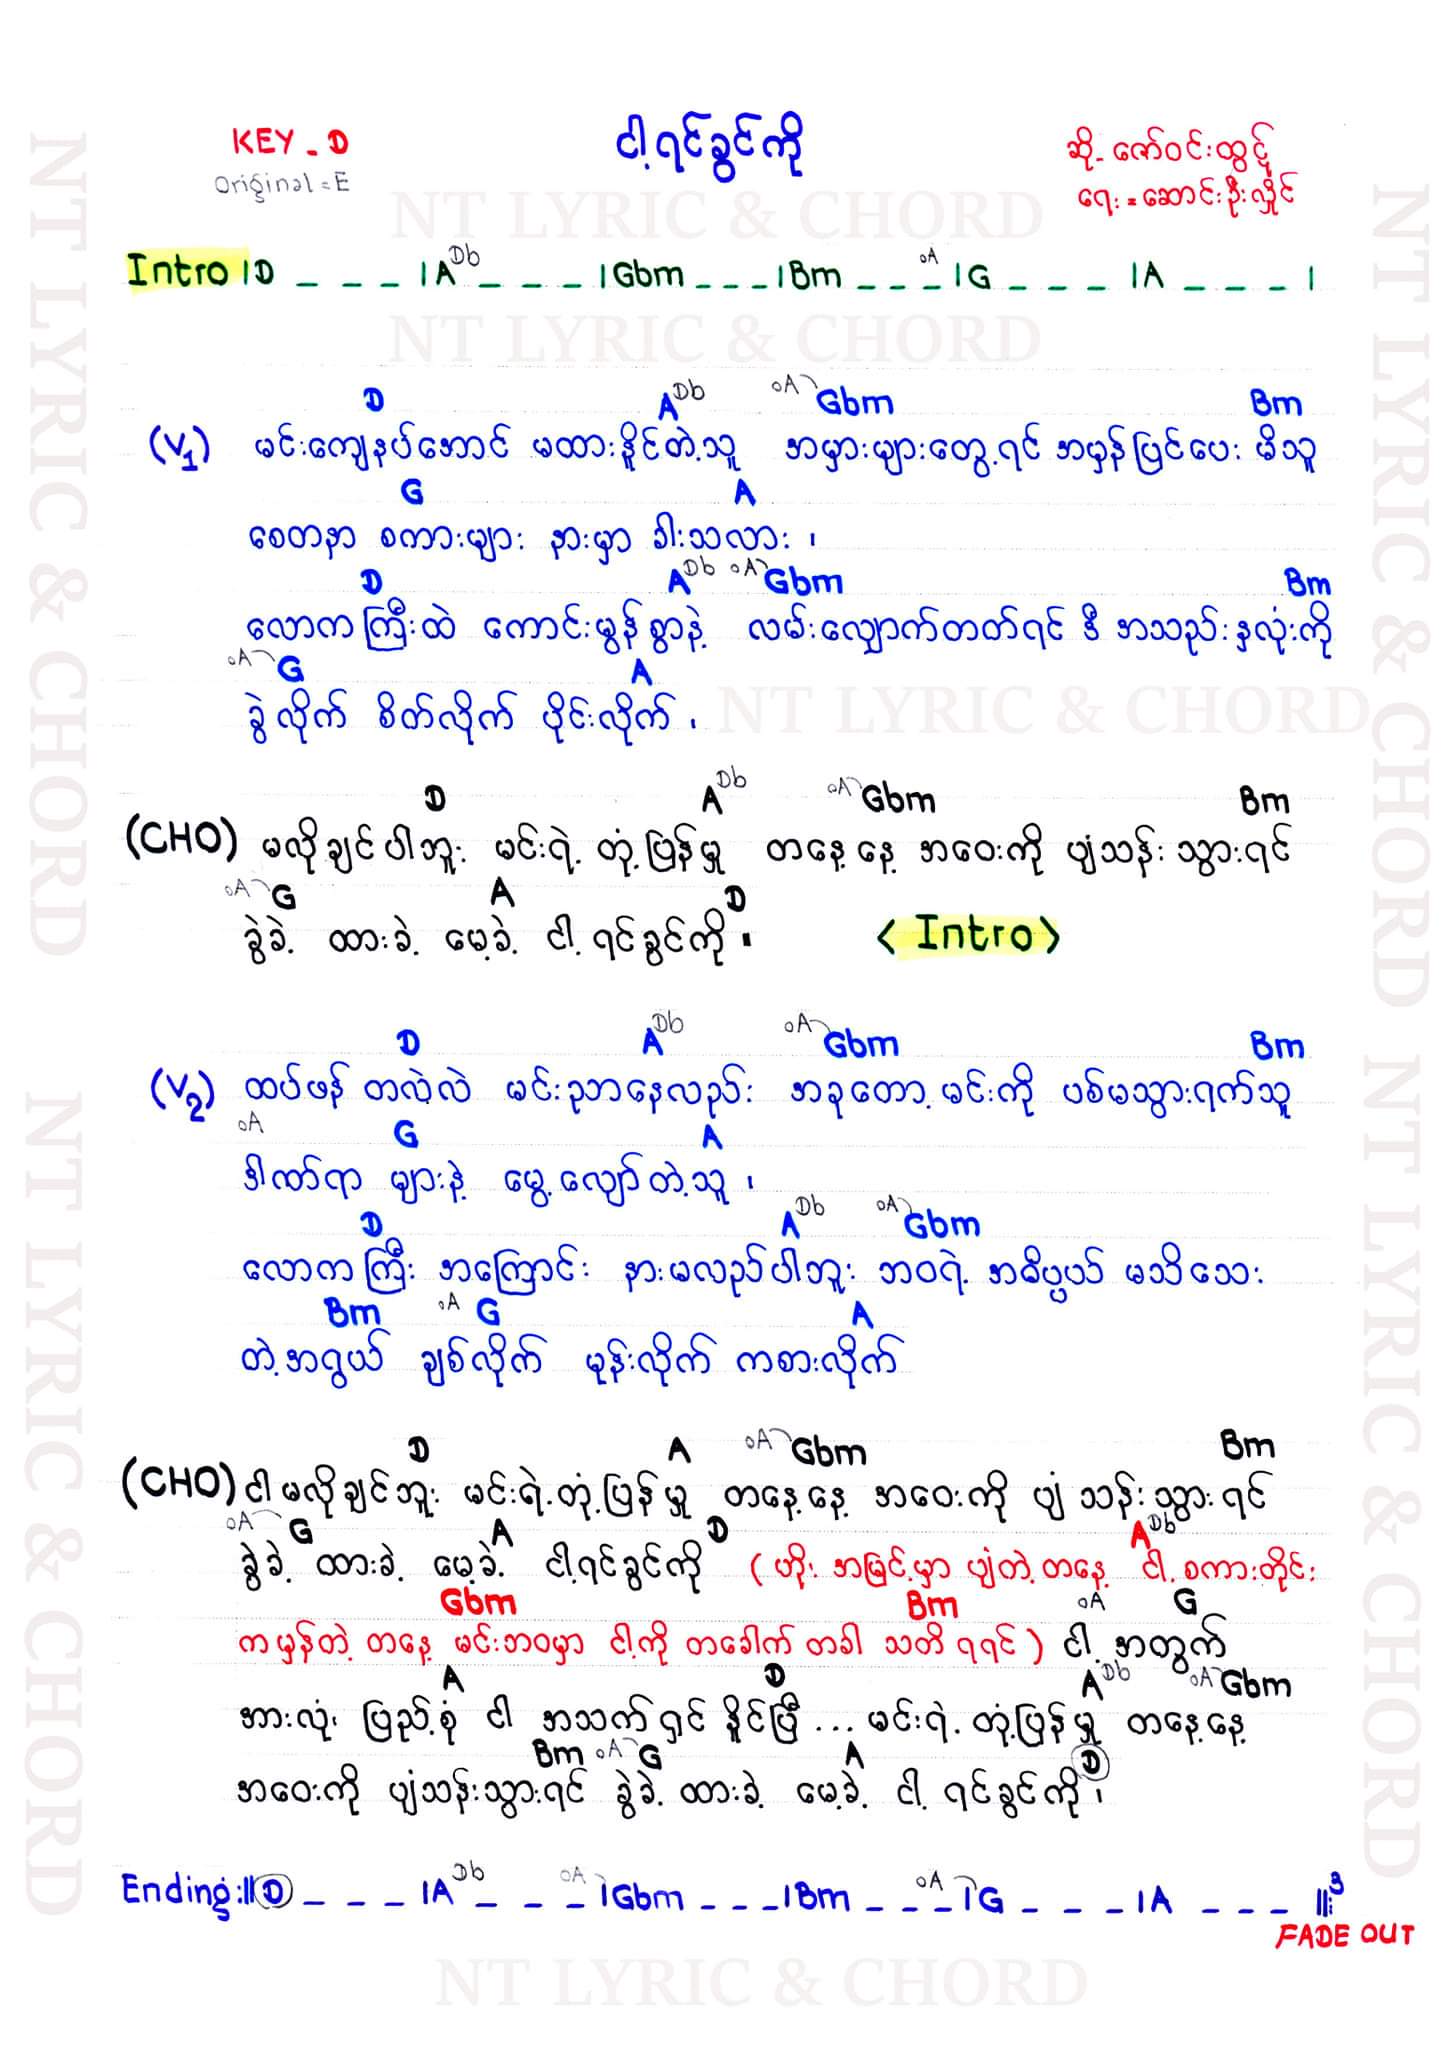 KEY - D
ငါ့ရင်ခွင်ကို
ဆို - ဇော်ဝင်းထွဋ်
Original = E
ရေး = ဆောင်းဦးလှိုင်
NT LYRIC & CHORD
Intro |D _ _ _ |A Db _ _ _ |Gbm _ _ _ |Bm _ _ _ oA |G _ _ _ |A _ _ _ |
NT LYRIC & CHORD
D A Db oA Gbm Bm
(V1) မင်းကျေနပ်အောင် မထားနိူင်တဲ့သူ အမှားများတွေ့ရင် အမှန်ပြင်ပေး မိသူ
G A
စေတနာ စကားများ နားမှာ ခါးသလား ၊
D A Db oA Gbm Bm
လောကကြီးထဲ ကောင်းမွန်စွာနဲ့ လမ်းလျှောက်တတ်ရင် ဒီ အသည်းနှလုံးကို
oA G A
ခွဲလိုက် စိတ်လိုက် ပိုင်းလိုက် ၊
NT LYRIC & CHORD
D A Db oA Gbm Bm
(CHO) မလိုချင်ပါဘူး မင်းရဲ့ တုံ့ပြန်မှု တနေ့နေ့ အဝေးကို ပျံသန်း သွားရင်
oA G A D
ခွဲခဲ့ ထားခဲ့ မေ့ခဲ့ ငါ့ ရင်ခွင်ကို ။ < Intro >
D A Db oA Gbm Bm
(V2) ထပ်ဖန် တလဲလဲ မင်းညာနေလည်း အခုတော့ မင်းကို ပစ်မသွားရက်သူ
oA G A
ဒါဏ်ရာ များနဲ့ မွေ့လျော်တဲ့သူ ၊
D A Db oA Gbm
လောကကြီး အကြောင်း နားမလည်ပါဘူး ဘဝရဲ့ အဓိပ္ပယ် မသိသေး
Bm oA G A
တဲ့အရွယ် ချစ်လိုက် မုန်းလိုက် ကစားလိုက်
D A oA Gbm Bm
(CHO) ငါမလိုချင်ဘူး မင်းရဲ့တုံ့ပြန်မှု တနေ့နေ့ အဝေးကို ပျံ သန်းသွားရင်
oA G A D A Db
ခွဲခဲ့ ထားခဲ့ မေ့ခဲ့ ငါ့ရင်ခွင်ကို ( ဟိုး အမြင့်မှာ ပျံတဲ့တနေ့ ငါ့ စကားတိုင်း
Gbm Bm oA G
ကမှန်တဲ့ တနေ့ မင်းဘဝမှာ ငါ့ကို တခေါက် တခါ သတိ ရရင် ) ငါ့ အတွက်
A D A Db oA Gbm
အားလုံး ပြည့်စုံ ငါ အသက်ရှင် နိူင်ပြီ ... မင်းရဲ့ တုံ့ပြန်မှု တနေ့နေ့
Bm oA G A D
အဝေးကို ပျံသန်းသွားရင် ခွဲခဲ့ ထားခဲ့ မေ့ခဲ့ ငါ့ ရင်ခွင်ကို ၊
Ending :||D _ _ _ |A Db _ _ _ oA |Gbm _ _ _ |Bm _ _ _ oA |G _ _ _ |A _ _ _ ||: 3
FADE OUT
NT LYRIC & CHORD
NT LYRIC & CHORD
NT LYRIC & CHORD
NT LYRIC & CHORD
NT LYRIC & CHORD